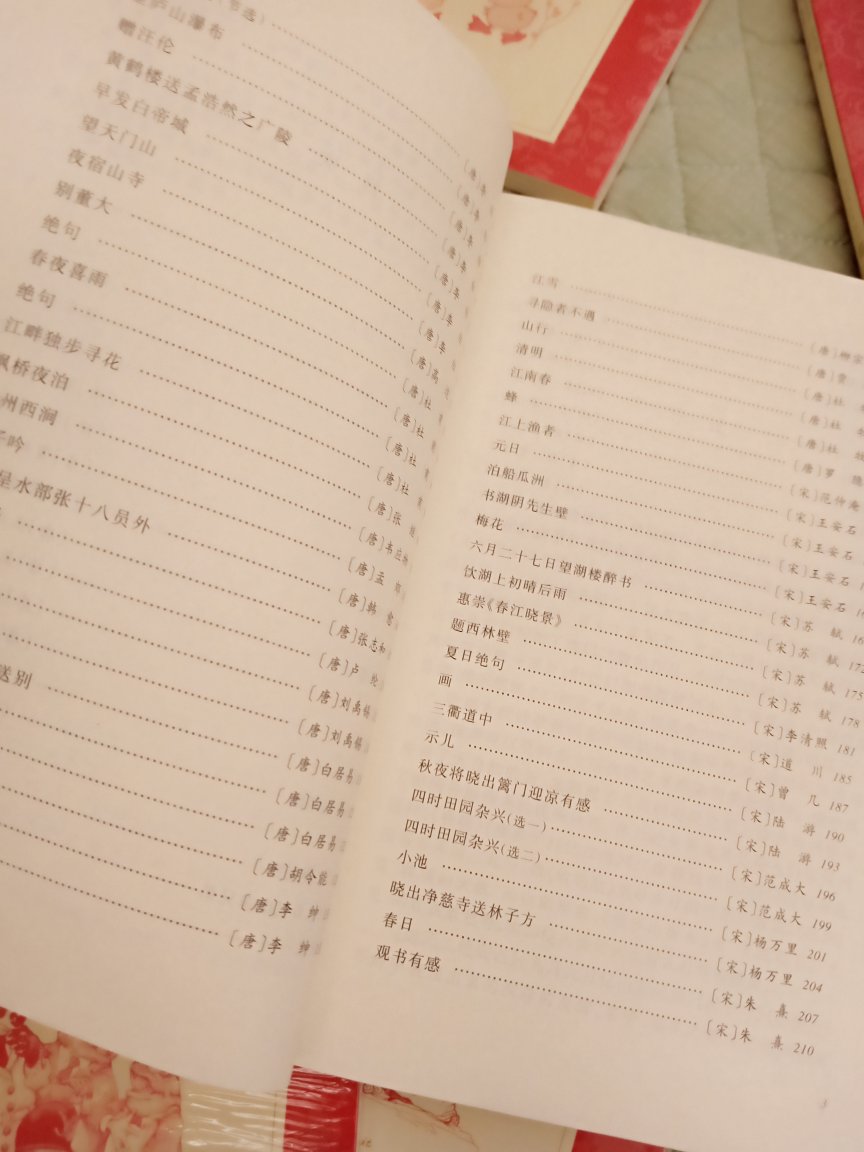 (节选) [唐]李
庐山瀑布 [唐]李
赠汪伦 [唐]李
黄鹤楼送孟浩然之广陵 [唐]李
早发白帝城 [唐]李
望天门山 [唐]李
夜宿山寺 [唐]李
别董大 [唐]高
绝句 [唐]杜
春夜喜雨 [唐]杜
绝句 [唐]杜
江畔独步寻花 [唐]杜
枫桥夜泊 [唐]张 继
州西涧 [唐]韦应物
子吟 [唐]孟 郊
呈水部张十八员外 [唐]韩 愈
[唐]张志和
[唐]卢 纶
[唐]刘禹锡
[唐]刘禹锡
送别 [唐]白居易
[唐]白居易
[唐]白居易
[唐]胡令能
[唐]李 绅
[唐]李 绅
江雪 [唐]柳宗
寻隐者不遇 [唐]贾
山行 [唐]杜
清明 [唐]杜 牧
江南春 [唐]杜 牧
蜂 [唐]罗 隐
江上渔者 [宋]范仲淹
元日 [宋]王安石
泊船瓜洲 [宋]王安石
书湖阴先生壁 [宋]王安石
梅花 [宋]王安石
六月二十七日望湖楼醉书 [宋]苏 轼
饮湖上初晴后雨 [宋]苏 轼 172
惠崇《春江晓景》 [宋]苏 轼 175
题西林壁 [宋]苏 轼 178
夏日绝句 [宋]李清照 181
画 [宋]道 川 185
三衢道中 [宋]曾 几 187
示儿 [宋]陆 游 190
秋夜将晓出篱门迎凉有感 [宋]陆 游 193
四时田园杂兴(选一) [宋]范成大 196
四时田园杂兴(选二) [宋]范成大 199
小池 [宋]杨万里 201
晓出净慈寺送林子方 [宋]杨万里 204
春日 [宋]朱 熹 207
观书有感 [宋]朱 熹 210
3